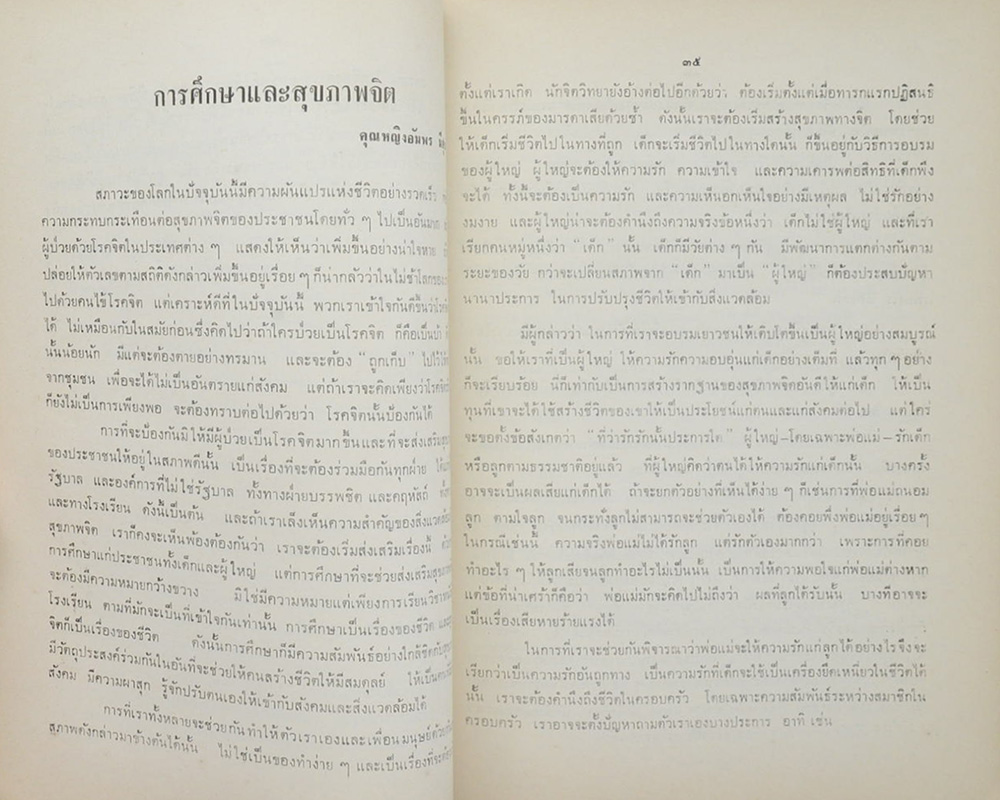 การศึกษาและสุขภาพจิต
คุณหญิงอัมพร
สภาวะของโลกในปัจจุบันนี้มีความผันแปรแห่งชีวิตอย่างรวดเร็ว
ความกระทบกระเทือนต่อสุขภาพจิตของประชาชนโดยทั่ว ๆ ไปเป็นอันมาก
ผู้ป่วยด้วยโรคจิตในประเทศต่าง ๆ แสดงให้เห็นว่าเพิ่มขึ้นอย่างน่าใจหาย
ปล่อยให้ตัวเลขตามสถิติดังกล่าวเพิ่มขึ้นอยู่เรื่อย ๆ ก็น่ากลัวว่าในไม่ช้าโลกของ
ไปด้วยคนไข้โรคจิต แต่เคราะห์ดีที่ในปัจจุบันนี้ พวกเราเข้าใจกันดีขึ้นว่าโรคจิต
ได้ ไม่เหมือนกับในสมัยก่อนซึ่งคิดไปว่าถ้าใครป่วยเป็นโรคจิต ก็คือเป็นบ้า
นั้นน้อยนัก มีแต่จะต้องตายอย่างทรมาน และจะต้อง “ถูกเก็บ” ไปไว้
จากชุมชน เพื่อจะได้ไม่เป็นอันตรายแก่สังคม แต่ถ้าเราจะคิดเพียงว่าโรคจิต
ก็ยังไม่เป็นการเพียงพอ จะต้องทราบต่อไปด้วยว่า โรคจิตนั้นป้องกันได้
การที่จะป้องกันมิให้มีผู้ป่วยเป็นโรคจิตมากขึ้นและที่จะส่งเสริมสุข
ของประชาชนให้อยู่ในสภาพดีนั้น เป็นเรื่องที่จะต้องร่วมมือกันทุกฝ่าย
รัฐบาล และองค์การที่ไม่ใช่รัฐบาล ทั้งทางฝ่ายบรรพชิต และคฤหัสถ์
และทางโรงเรียน ดังนี้เป็นต้น และถ้าเราเล็งเห็นความสำคัญของสิ่งแวดล้อม
สุขภาพจิต เราก็คงจะเห็นพ้องต้องกันว่า เราจะต้องเริ่มส่งเสริมเรื่องนี้
การศึกษาแก่ประชาชนทั้งเด็กและผู้ใหญ่ แต่การศึกษาที่จะช่วยส่งเสริมสุขภาพ
จะต้องมีความหมายกว้างขวาง มิใช่มีความหมายแต่เพียงการเรียนวิชา
โรงเรียน ตามที่มักจะเป็นที่เข้าใจกันเท่านั้น การศึกษาเป็นเรื่องของชีวิต
จิตก็เป็นเรื่องของชีวิต ดังนั้นการศึกษาก็มีความสัมพันธ์อย่างใกล้ชิดกับสุข
มีวัตถุประสงค์ร่วมกันในอันที่จะช่วยให้คนสร้างชีวิตให้มีสมดุลย์ ให้เป็น
สังคม มีความผาสุก รู้จักปรับตนเองให้เข้ากับสังคมและสิ่งแวดล้อมได้
การที่เราทั้งหลายจะช่วยกันทำให้ตัวเราเองและเพื่อนมนุษย์ด้วย
สุภาพดังกล่าวมาข้างต้นได้นั้น ไม่ใช่เป็นของทำง่าย ๆ และเป็นเรื่องที่จะ
๓๕
ตั้งแต่เราเกิด นักจิตวิทยายังอ้างต่อไปอีกด้วยว่า ต้องเริ่มตั้งแต่เมื่อทารกแรกปฏิสนธิ
ขึ้นในครรภ์ของมารดาเสียด้วยซ้ำ ดังนั้นเราจะต้องเริ่มสร้างสุขภาพทางจิต โดยช่วย
ให้เด็กเริ่มชีวิตไปในทางที่ถูก เด็กจะเริ่มชีวิตไปในทางใดนั้น ก็ขึ้นอยู่กับวิธีการอบรม
ของผู้ใหญ่ ผู้ใหญ่จะต้องให้ความรัก ความเข้าใจ และความเคารพต่อสิทธิที่เด็กพึง
จะได้ ทั้งนี้จะต้องเป็นความรัก และความเห็นอกเห็นใจอย่างมีเหตุผล ไม่ใช่รักอย่าง
งมงาย และผู้ใหญ่น่าจะต้องคำนึงถึงความจริงข้อหนึ่งว่า เด็กไม่ใช่ผู้ใหญ่ และที่เรา
เรียกคนหมู่หนึ่งว่า “เด็ก” นั้น เด็กก็มีวัยต่าง ๆ กัน มีพัฒนาการแตกต่างกันตาม
ระยะของวัย กว่าจะเปลี่ยนสภาพจาก “เด็ก” มาเป็น “ผู้ใหญ่” ก็ต้องประสบปัญหา
นานาประการ ในการปรับปรุงชีวิตให้เข้ากับสิ่งแวดล้อม
มีผู้กล่าวว่า ในการที่เราจะอบรมเยาวชนให้เติบโตขึ้นเป็นผู้ใหญ่อย่างสมบูรณ์
นั้น ขอให้เราที่เป็นผู้ใหญ่ ให้ความรักความอบอุ่นแก่เด็กอย่างเต็มที่ แล้วทุก ๆ อย่าง
ก็จะเรียบร้อย นี่ก็เท่ากับเป็นการสร้างรากฐานของสุขภาพจิตอันดีให้แก่เด็ก ให้เป็น
ทุนที่เขาจะได้ใช้สร้างชีวิตของเขาให้เป็นประโยชน์แก่ตนและแก่สังคมต่อไป แต่ใคร่
จะขอตั้งข้อสังเกตว่า “ที่ว่ารักรักนั้นประการใด” ผู้ใหญ่–โดยเฉพาะพ่อแม่–รักเด็ก
หรือลูกตามธรรมชาติอยู่แล้ว ที่ผู้ใหญ่คิดว่าตนได้ให้ความรักแก่เด็กนั้น บางครั้ง
อาจจะเป็นผลเสียแก่เด็กได้ ถ้าจะยกตัวอย่างที่เห็นได้ง่าย ๆ ก็เช่นการที่พ่อแม่ถนอม
ลูก ตามใจลูก จนกระทั่งลูกไม่สามารถจะช่วยตัวเองได้ ต้องคอยพึ่งพ่อแม่อยู่เรื่อยๆ
ในกรณีเช่นนี้ ความจริงพ่อแม่ไม่ได้รักลูก แต่รักตัวเองมากกว่า เพราะการที่คอย
ทำอะไร ๆ ให้ลูกเสียจนลูกทำอะไรไม่เป็นนั้น เป็นการให้ความพอใจแก่พ่อแม่ต่างหาก
แต่ข้อที่น่าเศร้าก็คือว่า พ่อแม่มักจะคิดไปไม่ถึงว่า ผลที่ลูกได้รับนั้น บางทีอาจจะ
เป็นเรื่องเสียหายร้ายแรงได้
ในการที่เราจะช่วยกันพิจารณาว่าพ่อแม่จะให้ความรักแก่ลูกได้อย่างไรจึงจะ
เรียกว่าเป็นความรักอันถูกทาง เป็นความรักที่เด็กจะใช้เป็นเครื่องยึดเหนี่ยวในชีวิตได้
นั้น เราจะต้องคำนึงถึงชีวิตในครอบครัว โดยเฉพาะความสัมพันธ์ระหว่างสมาชิกใน
ครอบครัว เราอาจจะตั้งปัญหาถามตัวเราเองบางประการ อาทิ เช่น